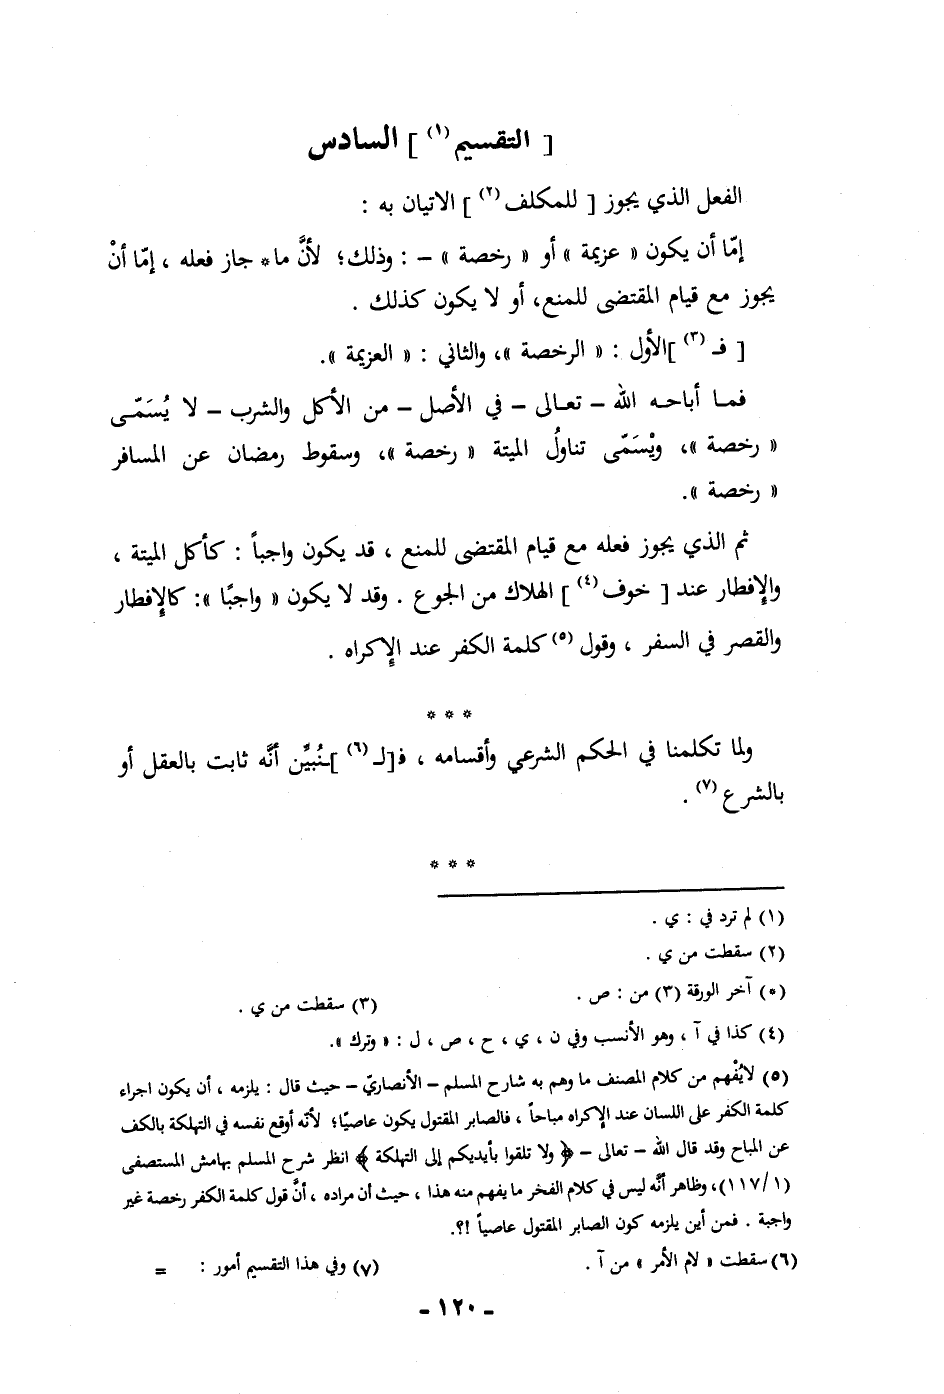 [ التقسيم (١) ] السادس
الفعل الذي يجوز [ للمكلف (٢) ] الاتيان به :
إمّا أن يكون « عزيمة » أو « رخصة » – : وذلك؛ لأنَّ ما* جاز فعله ، إمّا أنْ
يجوز مع قيام المقتضى للمنع، أو لا يكون كذلك .
[ فـ (٣) ]الأول : « الرخصة »، والثاني : « العزيمة ».
فمـا أباحـه الله – تعـالى – في الأصل – من الأكل والشرب – لا يُسَمّـى
« رخصة »، ويْسَمّى تناولُ الميتة « رخصة »، وسقوط رمضان عن المسافر
« رخصة ».
ثم الذي يجوز فعله مع قيام المقتضى للمنع ، قد يكون واجباً : كأكل الميتة ،
والإفطار عند [ خوف (٤) ] الهلاك من الجوع . وقد لا يكون « واجبًا »: كالإفطار
والقصر في السفر ، وقول (٥) كلمة الكفر عند الإكراه .
* * *
ولما تكلمنا في الحكم الشرعي وأقسامه ، فـ[لـ (٦) ]ـنُبيِّن أنَّه ثابت بالعقل أو
بالشرع (٧) .
* * *
(١) لم ترد في : ي .
(٢) سقطت من ي .
(*) آخر الورقة (٣) من : ص .
(٣) سقطت من ي .
(٤) كذا في آ ، وهو الأنسب وفي ن ، ي ، ح ، ص ، ل : « وترك ».
(٥) لايُفْهم من كلام المصنف ما وهم به شارح المسلم – الأنصاريّ – حيث قال : يلزمه ، أن يكون اجراء
كلمة الكفر على اللسان عند الإكراه مباحاً ، فالصابر المقتول يكون عاصيًا؛ لأنّه أوقع نفسه في التهلكة بالكف
عن المباح وقد قال الله – تعالى – ﴿ ولا تلقوا بأيديكم إلى التهلكة ﴾ انظر شرح المسلم بهامش المستصفى
(١/١١٧)، وظاهر أنَّه ليس في كلام الفخر ما يفهم منه هذا ، حيث أن مراده ، أنَّ قول كلمة الكفر رخصة غير
واجبة . فمن أين يلزمه كون الصابر المقتول عاصياً !؟.
(٦) سقطت « لام الأمر » من آ .
(٧) وفي هذا التقسيم أمور : =
- ١٢٠ -